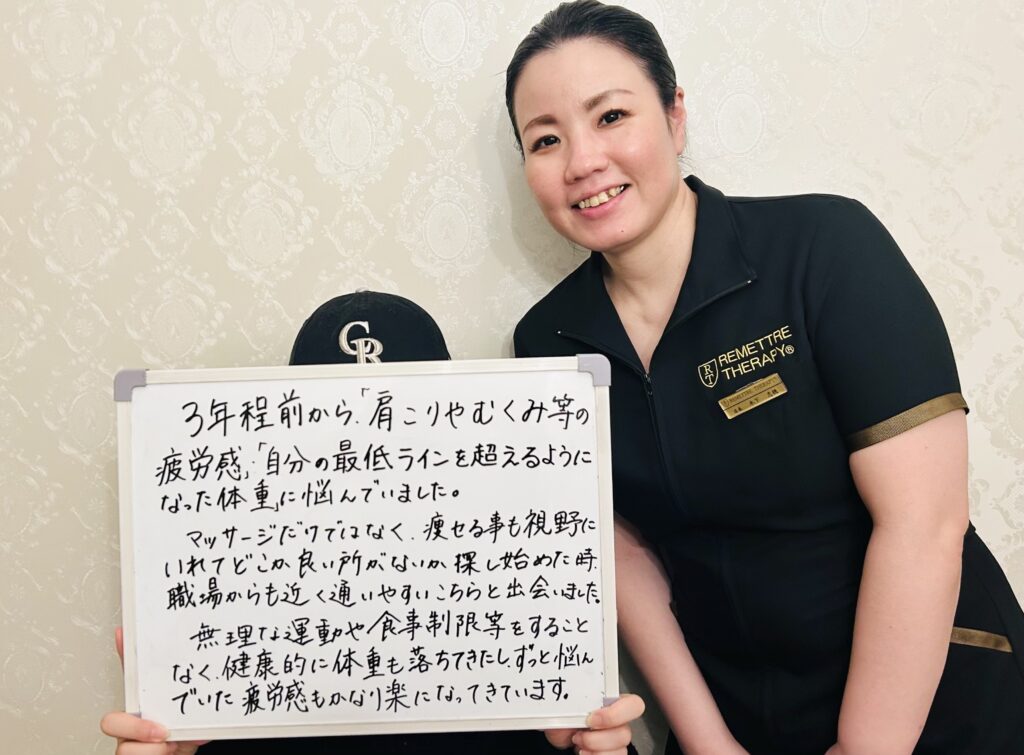 CR
REMETTRE
THERAPY®
RT
REMETTRE THERAPY
3年程前から、「肩こりやむくみ等の
疲労感」・「自分の最低ラインを超えるように
なった体重」に悩んでいました。
マッサージだけではなく、痩せる事も視野に
いれてどこか良い所がないか探し始めた時、
職場からも近く通いやすいこちらと出会いました。
無理な運動や食事制限等をすること
なく、健康的に体重も落ちてきたし、ずっと悩ん
でいた疲労感もかなり楽になってきています。